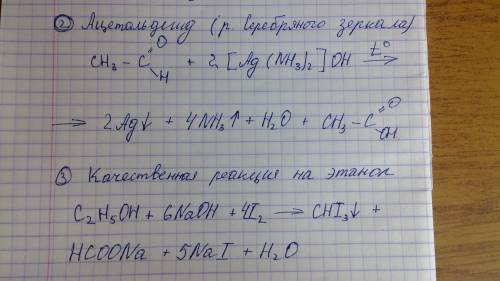 ② Ацетальдегид (р. Серебряного зеркала)
CH₃ – C (=O) H + 2 [Ag(NH₃)₂]OH t° →
→ 2Ag↓ + 4NH₃↑ + H₂O + CH₃ – C (=O) OH
③ Качественная реакция на этанол
C₂H₅OH + 6NaOH + 4I₂ → CHI₃↓ +
HCOONa + 5NaI + H₂O